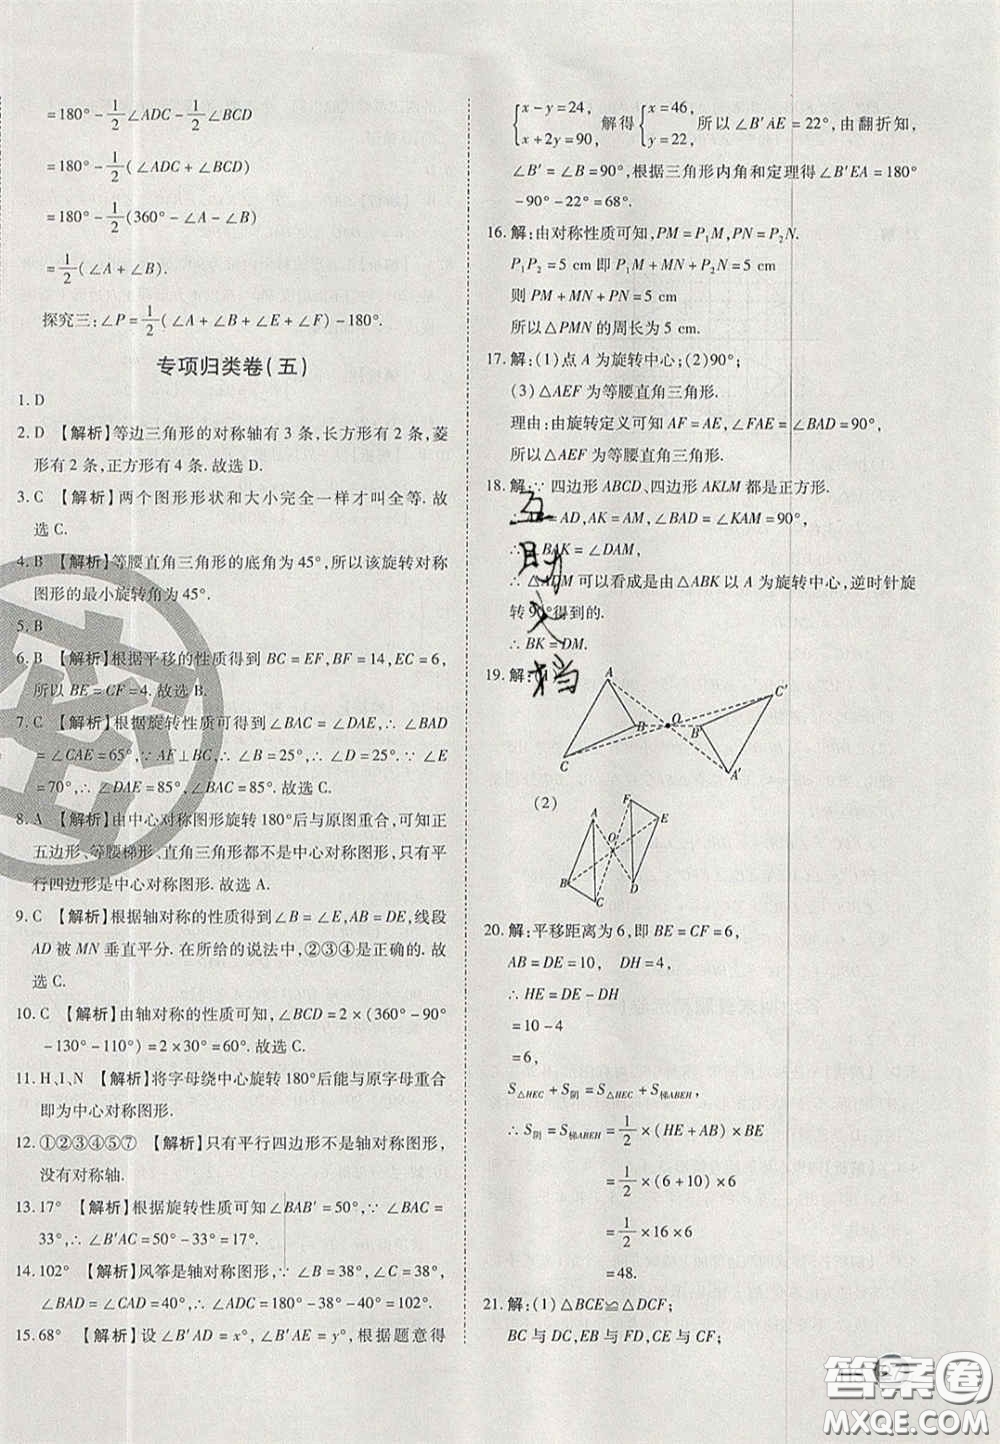 =180°-1/2∠ADC-1/2∠BCD
=180°-1/2(∠ADC+∠BCD)
=180°-1/2(360°-∠A-∠B)
=1/2(∠A+∠B).
探究三:∠P=1/2(∠A+∠B+∠E+∠F)-180°.
专项归类卷(五)
1. D
2. D 【解析】等边三角形的对称轴有 3 条,长方形有 2 条,菱
形有 2 条,正方形有 4 条.故选 D.
3. C 【解析】两个图形形状和大小完全一样才叫全等.故
选 C.
4. B 【解析】等腰直角三角形的底角为 45°,所以该旋转对称
图形的最小旋转角为 45°.
5. B
6. B 【解析】根据平移的性质得到 BC=EF,BF=14,EC=6,
所以 BE=CF=4.故选 B.
7. C 【解析】根据旋转性质可得到∠BAC=∠DAE,∴∠BAD
=∠CAE=65°,∵AF⊥BC,∴∠B=25°,∴∠D=25°,∵∠E
=70°,∴∠DAE=85°,∴∠BAC=85°.故选 C.
8. A 【解析】由中心对称图形旋转 180°后与原图重合,可知正
五边形、等腰梯形、直角三角形都不是中心对称图形,只有平
行四边形是中心对称图形.故选 A.
9. C 【解析】根据轴对称的性质得到∠B=∠E,AB=DE,线段
AD 被 MN 垂直平分.在所给的说法中,②③④是正确的.故
选 C.
10. C 【解析】由轴对称的性质可知,∠BCD=2×(360°-90°
-130°-110°)=2×30°=60°.故选 C.
11. H、I、N 【解析】将字母绕中心旋转 180°后能与原字母重合
即为中心对称图形.
12. ①②③④⑤⑦ 【解析】只有平行四边形不是轴对称图形,
没有对称轴.
13. 17° 【解析】根据旋转性质可知∠BAB′=50°,∵∠BAC=
33°,∴∠B′AC=50°-33°=17°.
14. 102° 【解析】风筝是轴对称图形,∴∠B=38°,∠C=38°.
∠BAD=∠CAD=40°,∴∠ADB=180°-38°-40°=102°.
15. 68° 【解析】设∠B′AD=x°,∠B′AE=y°,根据题意得
{x-y=24, x+2y=90, 解得 {x=46, y=22. 所以∠B′AE=22°,由翻折知,
∠B′=∠B=90°,根据三角形内角和定理得∠B′EA=180°
-90°-22°=68°.
16. 解:由对称性质可知,PM=P₁M,PN=P₂N.
P₁P₂=5 cm 即 P₁M+MN+P₂N=5 cm
则 PM+MN+PN=5 cm
所以△PMN 的周长为 5 cm.
17. 解:(1)点 A 为旋转中心;(2)90°;
(3)△AEF 为等腰直角三角形.
理由:由旋转定义可知 AF=AE,∠FAE=∠BAD=90°,
所以△AEF 为等腰直角三角形.
18. 解:∵四边形 ABCD、四边形 AKLM 都是正方形.
∴AB=AD,AK=AM,∠BAD=∠KAM=90°,
∴∠BAK=∠DAM,
∴△ADM 可以看成是由△ABK 以 A 为旋转中心,逆时针旋
转 90°得到的.
∴BK=DM.
19. 解:(1)
A
C′
B
O
B′
C
A′
(2)
F
A
E
O
B
D
C
20. 解:平移距离为 6,即 BE=CF=6,
AB=DE=10, DH=4,
∴HE=DE-DH
=10-4
=6,
S△HEC+S阴=S△HEC+S梯ABEH,
∴S阴=S梯ABEH=1/2×(HE+AB)×BE
=1/2×(6+10)×6
=1/2×16×6
=48.
21. 解:(1)△BCE≌△DCF;
BC 与 DC,EB 与 FD,CE 与 CF;
五
明
义
档
密
答案圈
MXQE.COM